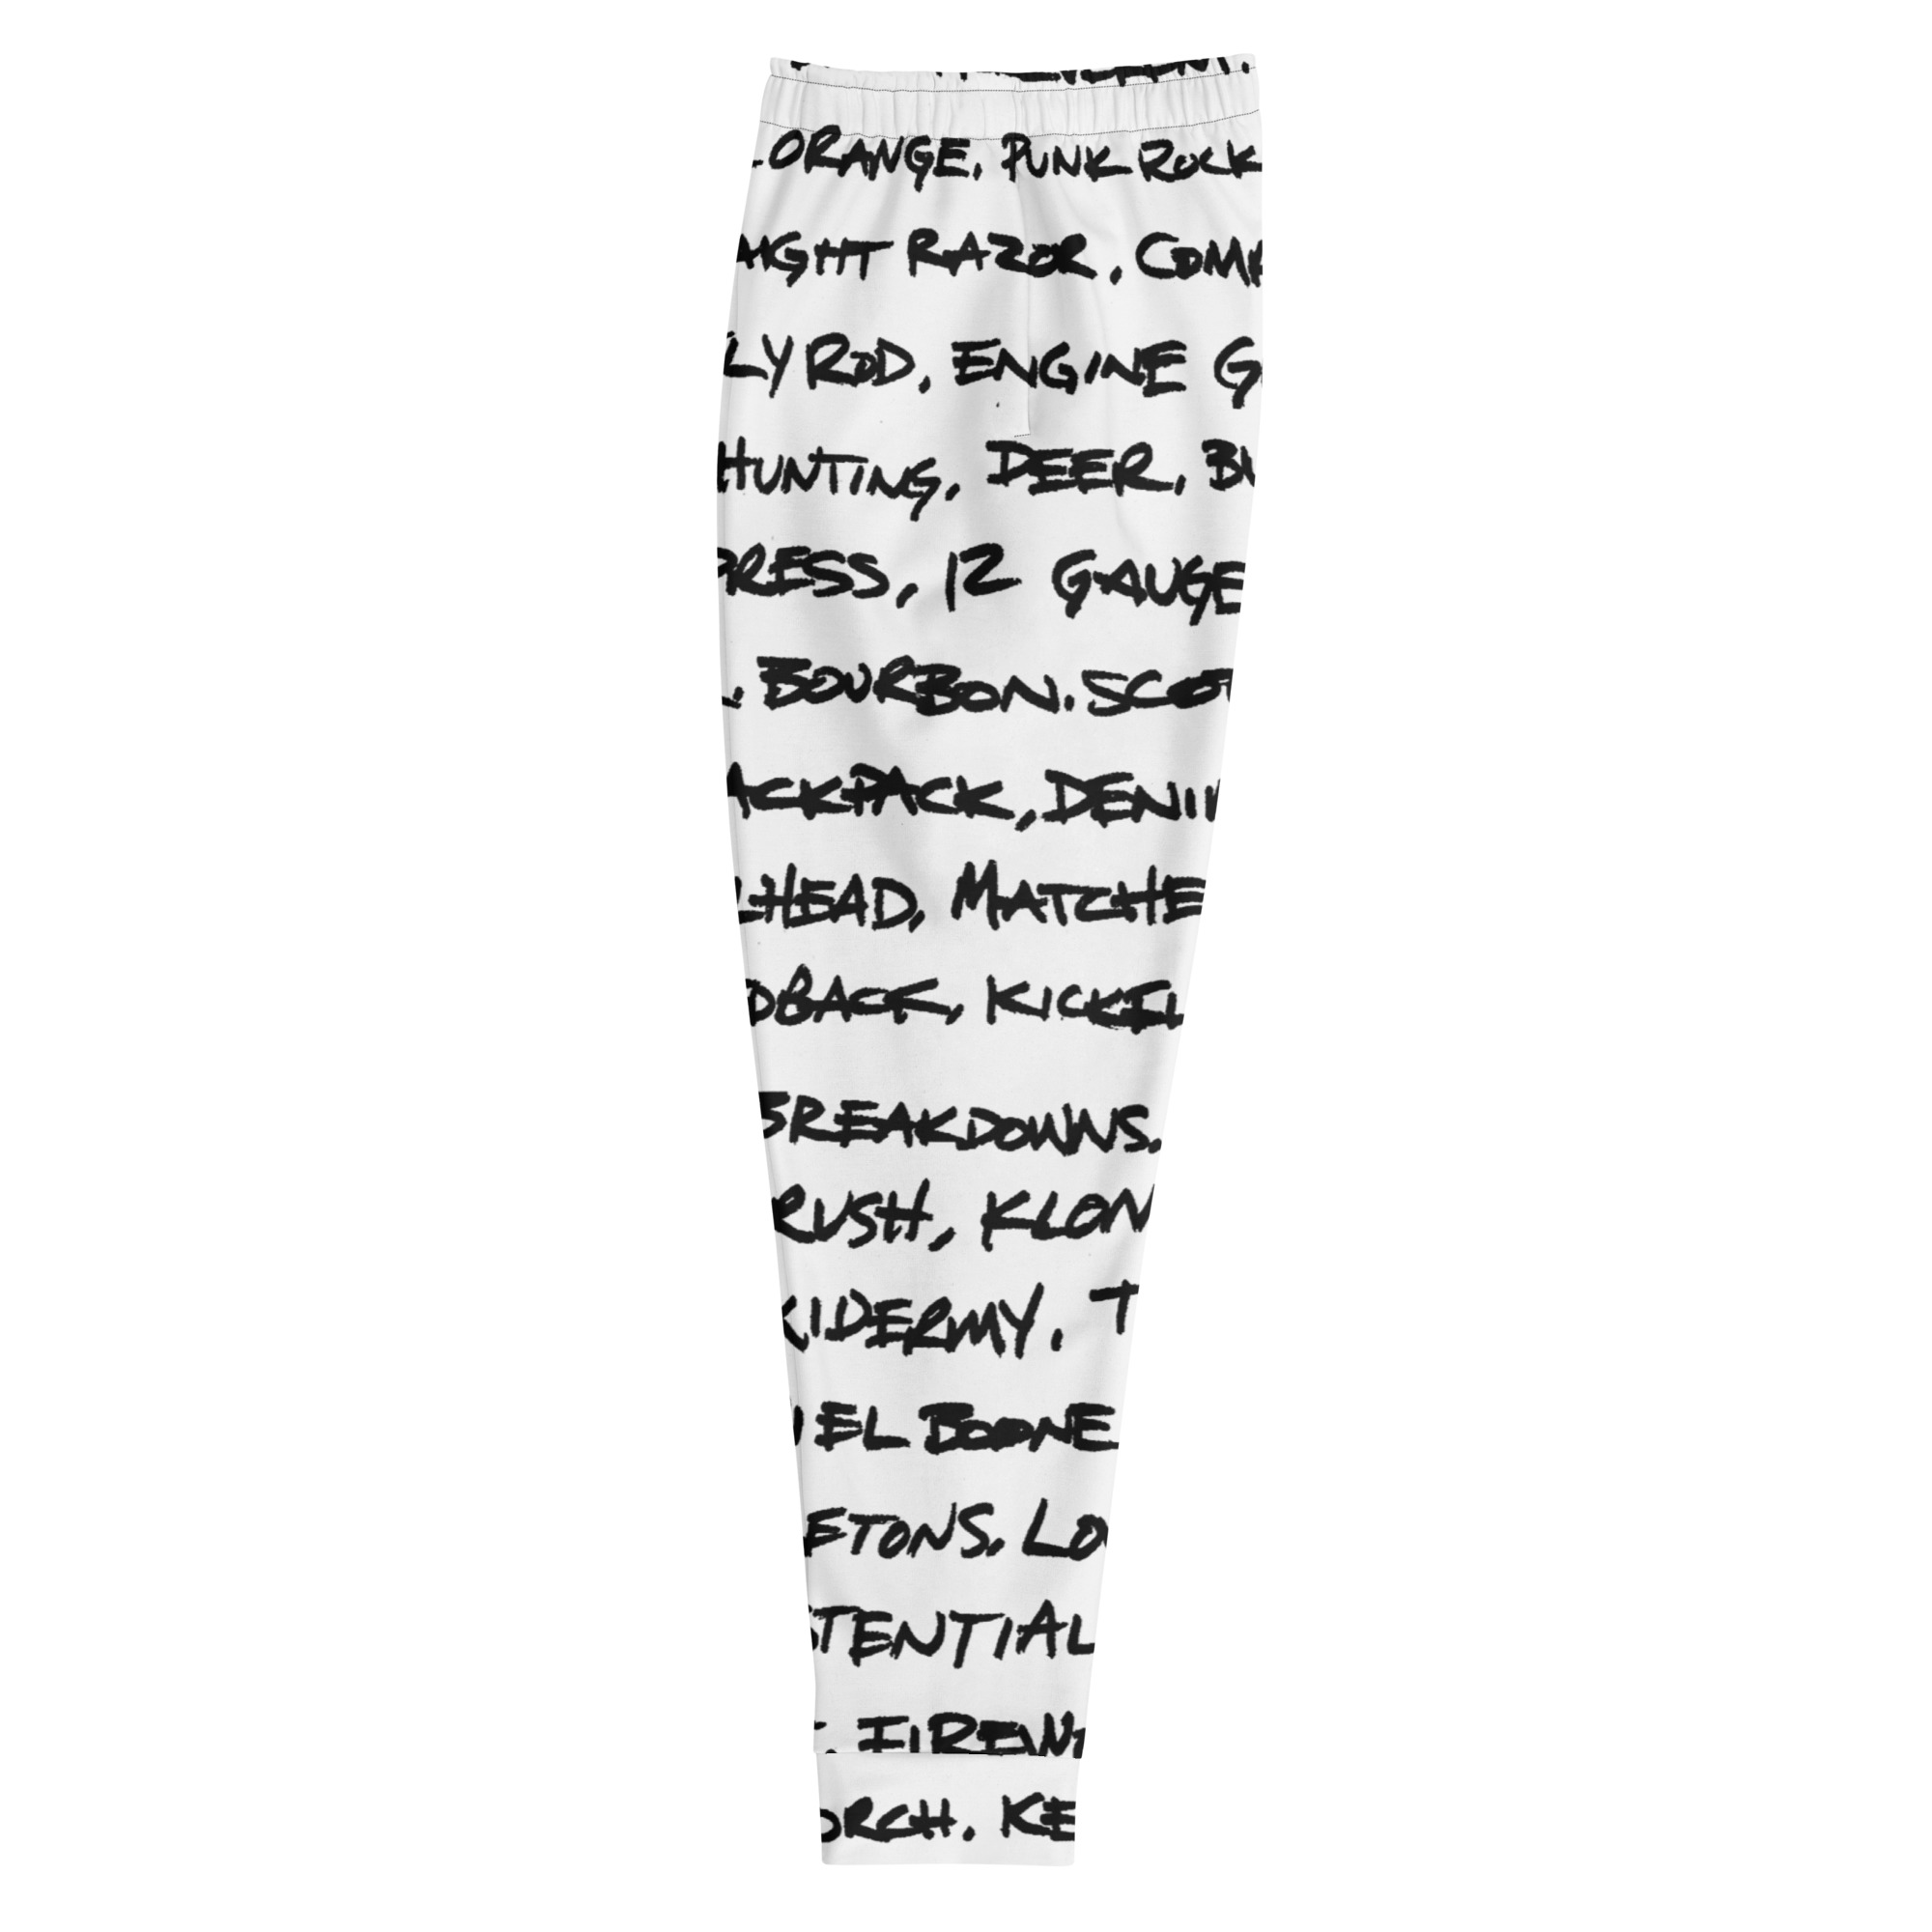 ORANGE. PUNK ROCK
AIGHT RAZOR. COM
LY ROD. ENGINE G
HUNTING. DEER, BU
PRESS, 12 GAUGE
. BOURBON. SCOT
ACKPACK, DENIM
LHEAD, MATCHE
DBACK, KICKFL
BREAKDOWNS.
RUSH, KLON
XIDERMY. T
IEL BOONE
ETONS. LO
STENTIAL
. FIREW
ORCH. KE